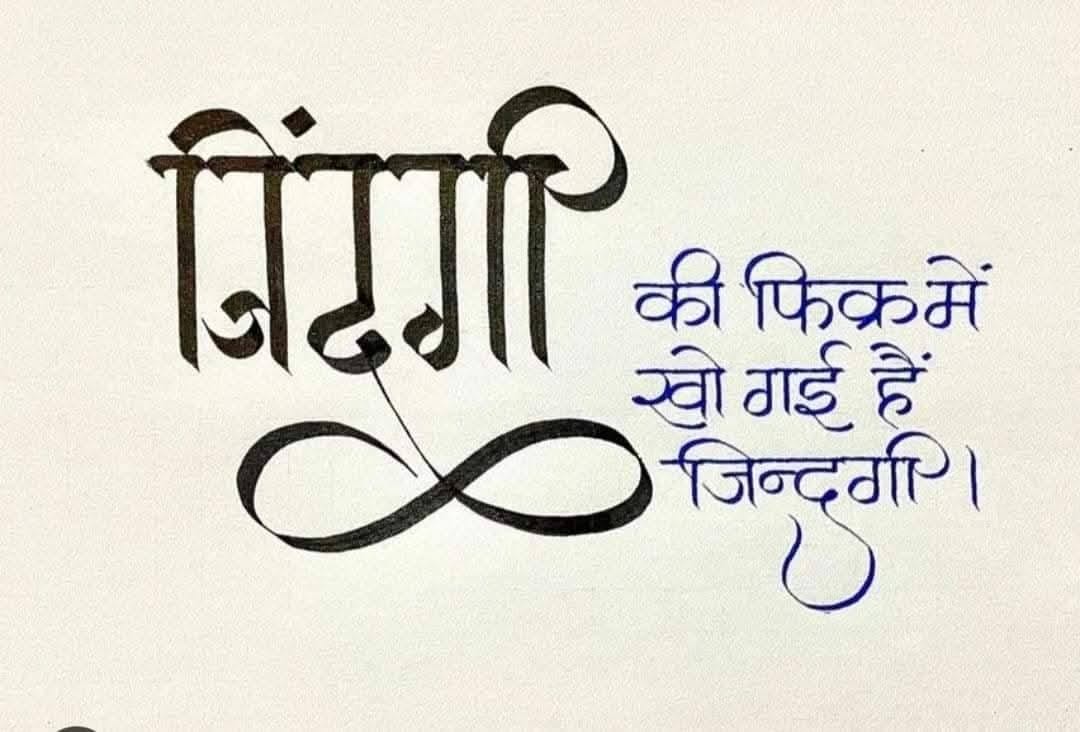 जिंदगी
की फिक्र में
खो गई हैं
जिन्दगी।